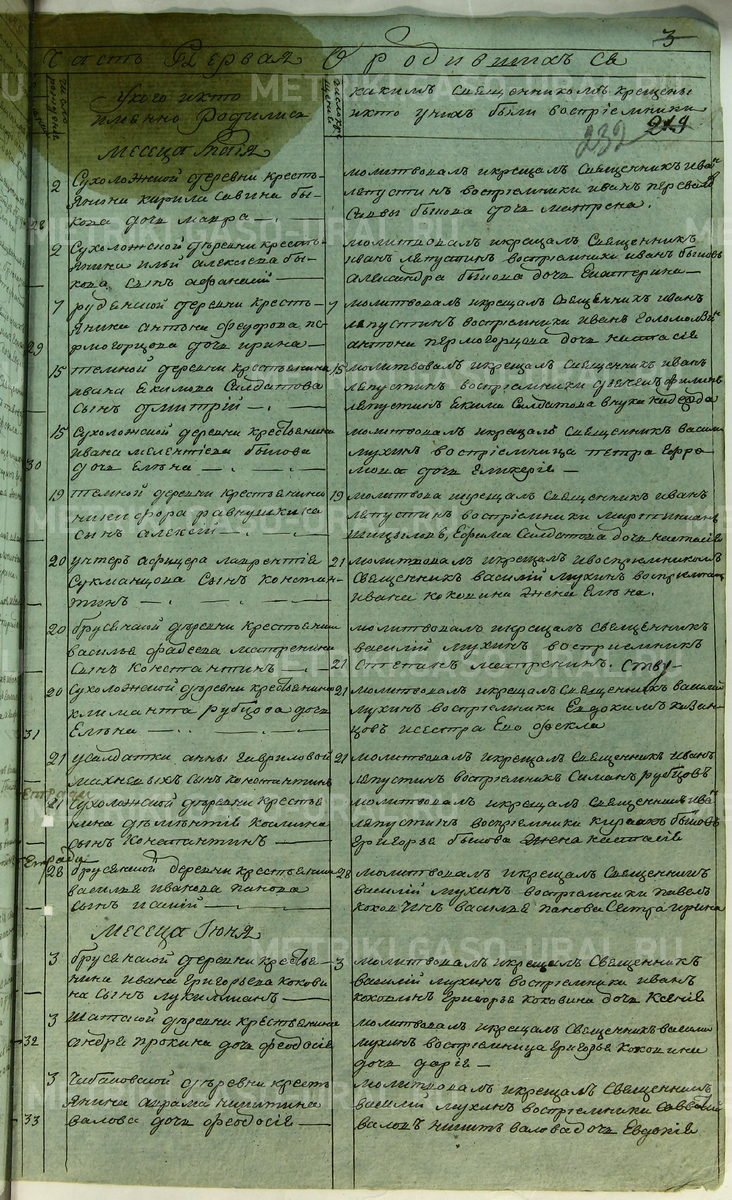 3
Часть Первая О родившихся
числа рождения
У кого и кто имянно родились
число крещения
какимъ священникомъ крещены
и кто у нихъ были восприемники
232 219
месеца Маия
2 Сухоложской деревни кресть-
янина кирила савина бы-
кова дочь мавра
молитвовалъ и крещалъ священникъ иванъ
лепустинъ восприемники иванъ
савы быкова дочь матрена.
28
2 Сухоложской деревни кресть-
янина ильи алексеева бы-
кова сынъ афанасий
молитвовалъ и крещалъ священникъ
иванъ лепустинъ восприемники иванъ быковъ
александра быкова дочь екатерина
7 рудянской деревни кресть-
янина антона федорова пе-
рмогорцова дочь ирина
29
7 молитвовалъ и крещалъ священникъ иванъ
лепустинъ восприемники иванъ
антона пермогорцова дочь настасия
15 темной деревни крестьянина
ивана екимова солдатова
сынъ дмитрий
15 молитвовалъ и крещалъ священникъ иванъ
лепустинъ восприемники
лепустинъ екима солдатова внука надежда
15 Сухоложской деревни крестьянина
ивана мелентьева быкова
дочь елена
30
молитвовалъ и крещалъ священникъ василий
мухинъ восприемница петра ефре-
мова дочь гликерия
19 темной деревни крестьянина
никифора равнушкина
сынъ алексий
19 молитвовалъ и крещалъ священникъ иванъ
лепустинъ восприемники мартиниянъ
шицыловъ, ефима солдатова дочь настасия
20 унтеръ афицера лаврентия
Сукманцова сынъ констан-
тинъ
21 молитвовалъ и крещалъ и восприемникомъ
священникъ василий мухинъ восприемница
ивана коковина жена елена.
20 брусянской деревни крестьянина
василья фадеева матренина
сынъ константинъ
21
молитвовалъ и крещалъ священникъ
василий мухинъ восприемникъ
степанъ матренинъ.
20 Сухоложской деревни крестьянина
климанта рубцова дочь
елена
31
21 молитвовалъ и крещалъ священникъ василий
мухинъ восприемники евдокимъ казан-
цовъ и сестра его фекла
21 у салдатки анны гавриловой
махневыхъ сынъ константинъ
21 молитвовалъ и крещалъ священникъ иванъ
лепустинъ восприемникъ симанъ рубцовъ
21 Сухоложской деревни крестья-
нина дементия
сынъ константинъ
молитвовалъ и крещалъ священникъ иванъ
лепустинъ восприемники быковъ
григорья быкова жена настасия
28 брусянской деревни крестьянина
василья иванова панова
сынъ исакий
28 молитвовалъ и крещалъ священникъ
василий мухинъ восприемники павелъ
василья панова сестра ирина
месеца Июня
3 брусянской деревни крестья-
нина ивана григорьева кокови-
на сынъ лукиллианъ
3 молитвовалъ и крещалъ священникъ
василий мухинъ восприемники иванъ
коковинъ григорья коковина дочь ксения
3 шатской деревни крестьянина
андрея прокина дочь феодосия
32
молитвовалъ и крещалъ священникъ василий
мухинъ восприемница григорья коковина
дочь дария
3 чибановской деревни кресть-
янина аврама никитина
валова дочь феодосия
33
молитвовалъ и крещалъ священникъ
василий мухинъ восприемники савватий
валовъ никиты валова дочь евдокия
METRIKI.GASO-URAL.RU